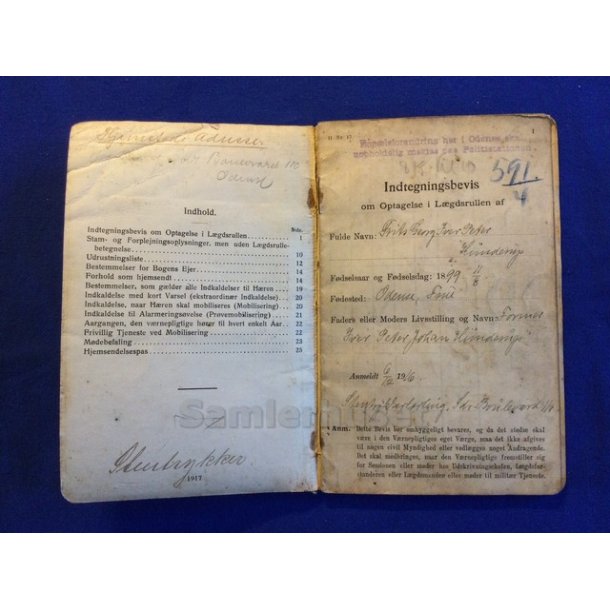 Hjemsteds Adresse
Odense
Indhold.
Side.
Indtegningsbevis om Optagelse i Lægdsrullen. 1
Stam- og Forplejningsoplysninger, men uden Lægdsrulle-
betegnelse 10
Udrustningsliste 12
Bestemmelser for Bogens Ejer 14
Forhold som hjemsendt 18
Bestemmelser, som gælder alle Indkaldelser til Hæren 19
Indkaldelse med kort Varsel (ekstraordinær Indkaldelse) 20
Indkaldelse, naar Hæren skal mobiliseres (Mobilisering) 20
Indkaldelse til Alarmeringsøvelse (Prøvemobilisering) 21
Aargangen, den værnepligtige hører til hvert enkelt Aar 22
Frivillig Tjeneste ved Mobilisering 22
Mødebefaling 23
Hjemsendelsespas 25
Samlerhuset
Stentrykker
1917
1
Bopælsforandring her i Odense skal
uopholdelig meldes paa Politistationen.
591
4
Indtegningsbevis
om Optagelse i Lægdsrullen af
Fulde Navn: Frits Georg Iver Peter
Fødselsaar og Fødselsdag: 1899 11/8
Fødested: Odense
Faders eller Moders Livsstilling og Navn: Former
Iver Peter Johan
Anmeldt 1916.
Anm. Dette Bevis bør omhyggeligt bevares, og da det stedse skal
være i den Værnepligtiges eget Værge, maa det ikke afgives
til nogen civil Myndighed eller vedlægges noget Andragende.
Det skal medbringes, naar den Værnepligtige fremstiller sig
for Sessionen eller møder hos Udskrivningschefen, Lægdsfor-
standeren eller Lægdsmanden eller møder til militær Tjeneste.